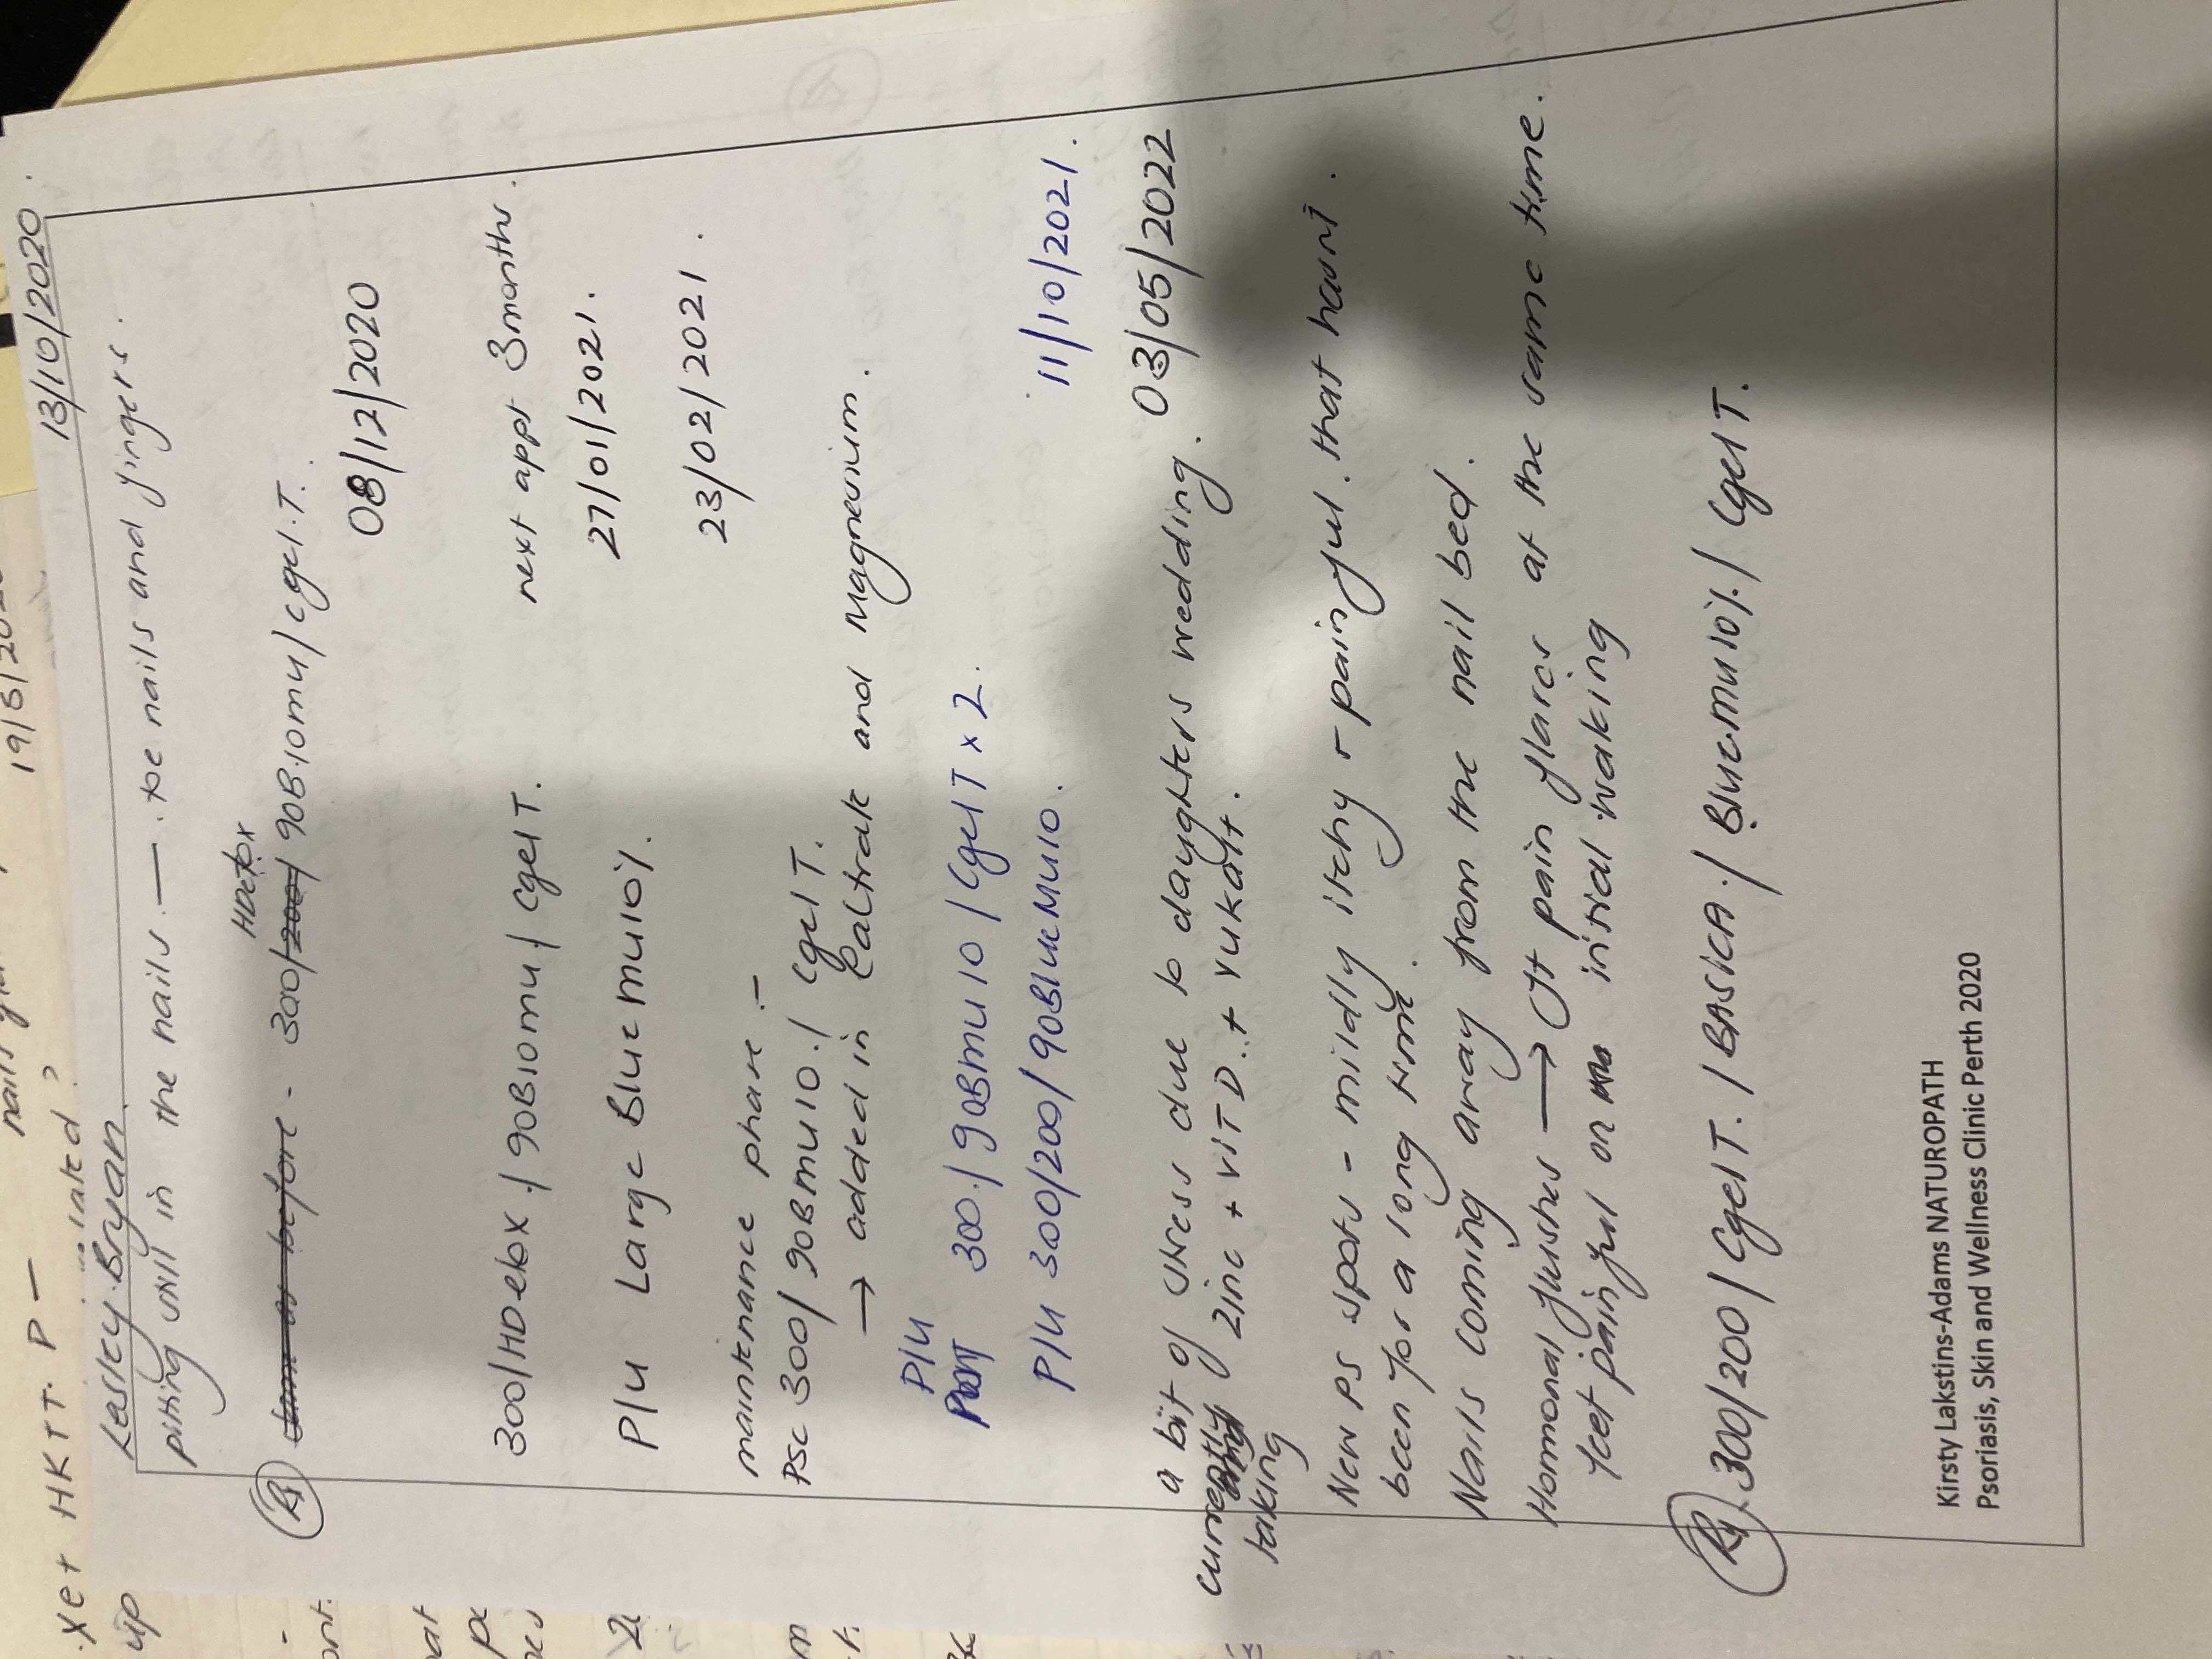 19/5/20
nail
xet HKTT. P —
up
13/10/2020.
Lesley Bryan
pitting still in the nails. — toe nails and fingers.
HDetox
Rx same as before - 300/200/ 90B.10mu/cgel.T.
08/12/2020
300/HDetox./90B10mu./cgelT. next appt 3months.
27/01/2021.
P/u Large Bluemu10%.
23/02/2021.
maintenance phase:-
PSC 300/90Bmu10./ CgelT.
→ added in Caltrate and Magnesium.
P/u
POST 300./90Bmu10/CgelT x 2.
11/10/2021.
P/u 300/200/90BlueMu10.
03/05/2022
a bit of stress due to daughters wedding.
currently taking zinc + vit D. + Yukatt.
New PS spots - mildly itchy + painful. that hasnt.
been for a long time.
Nails coming away from the nail bed.
Hormonal flushes → Jt pain flares at the same time.
feet painful on initial waking
Rx 300/200/CgelT./BASICA./Blue.mu10%/CgelT.
Kirsty Lakstins-Adams NATUROPATH
Psoriasis, Skin and Wellness Clinic Perth 2020